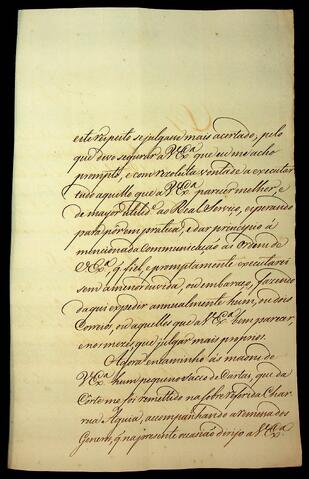 este respeito se julgase mais acertado, pelo
que devo segurar a V.Ex.ª que eu me acho
prompto, e com resoluta vontade a executar
tudo aquillo que a V.Ex.ª parecer melhor, e
de mayor utilid.e ao Real Serviço, esperando
para pôr em pratica, e dar principio á
mencionada Communicação as Ordens de
V.Ex.ª q fiel, e promptamente executarei
sem a menor duvida, ou embaraço, fazendo
daqui expedir annualmente hum, ou dois
Correios, ou aquelles que a V.Ex.ª bem parecer,
e nos mezes, que julgar mais proprios.
Agora encaminho ás maons de
V.Ex.ª hum pequeno sacco de Cartas, que da
Côrte me foi remettido na sobre referida Char
rua Aguia, acompanhando a remessa dos
Generos, q na presente occasião dirijo a V.Ex.ª